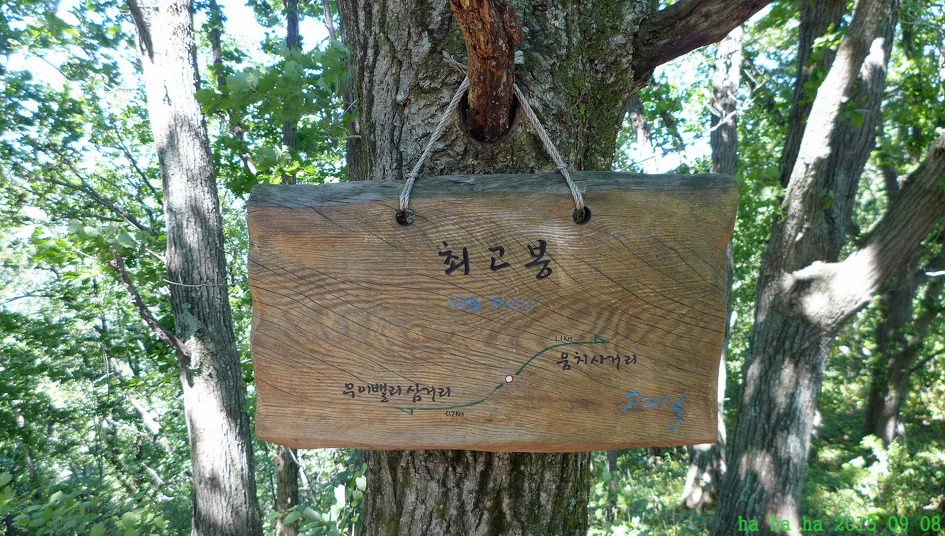 최고봉
1.1Km
뭉치사거리
무이밸리 삼거리
0.2Km
ha ha ha 2015 09 08